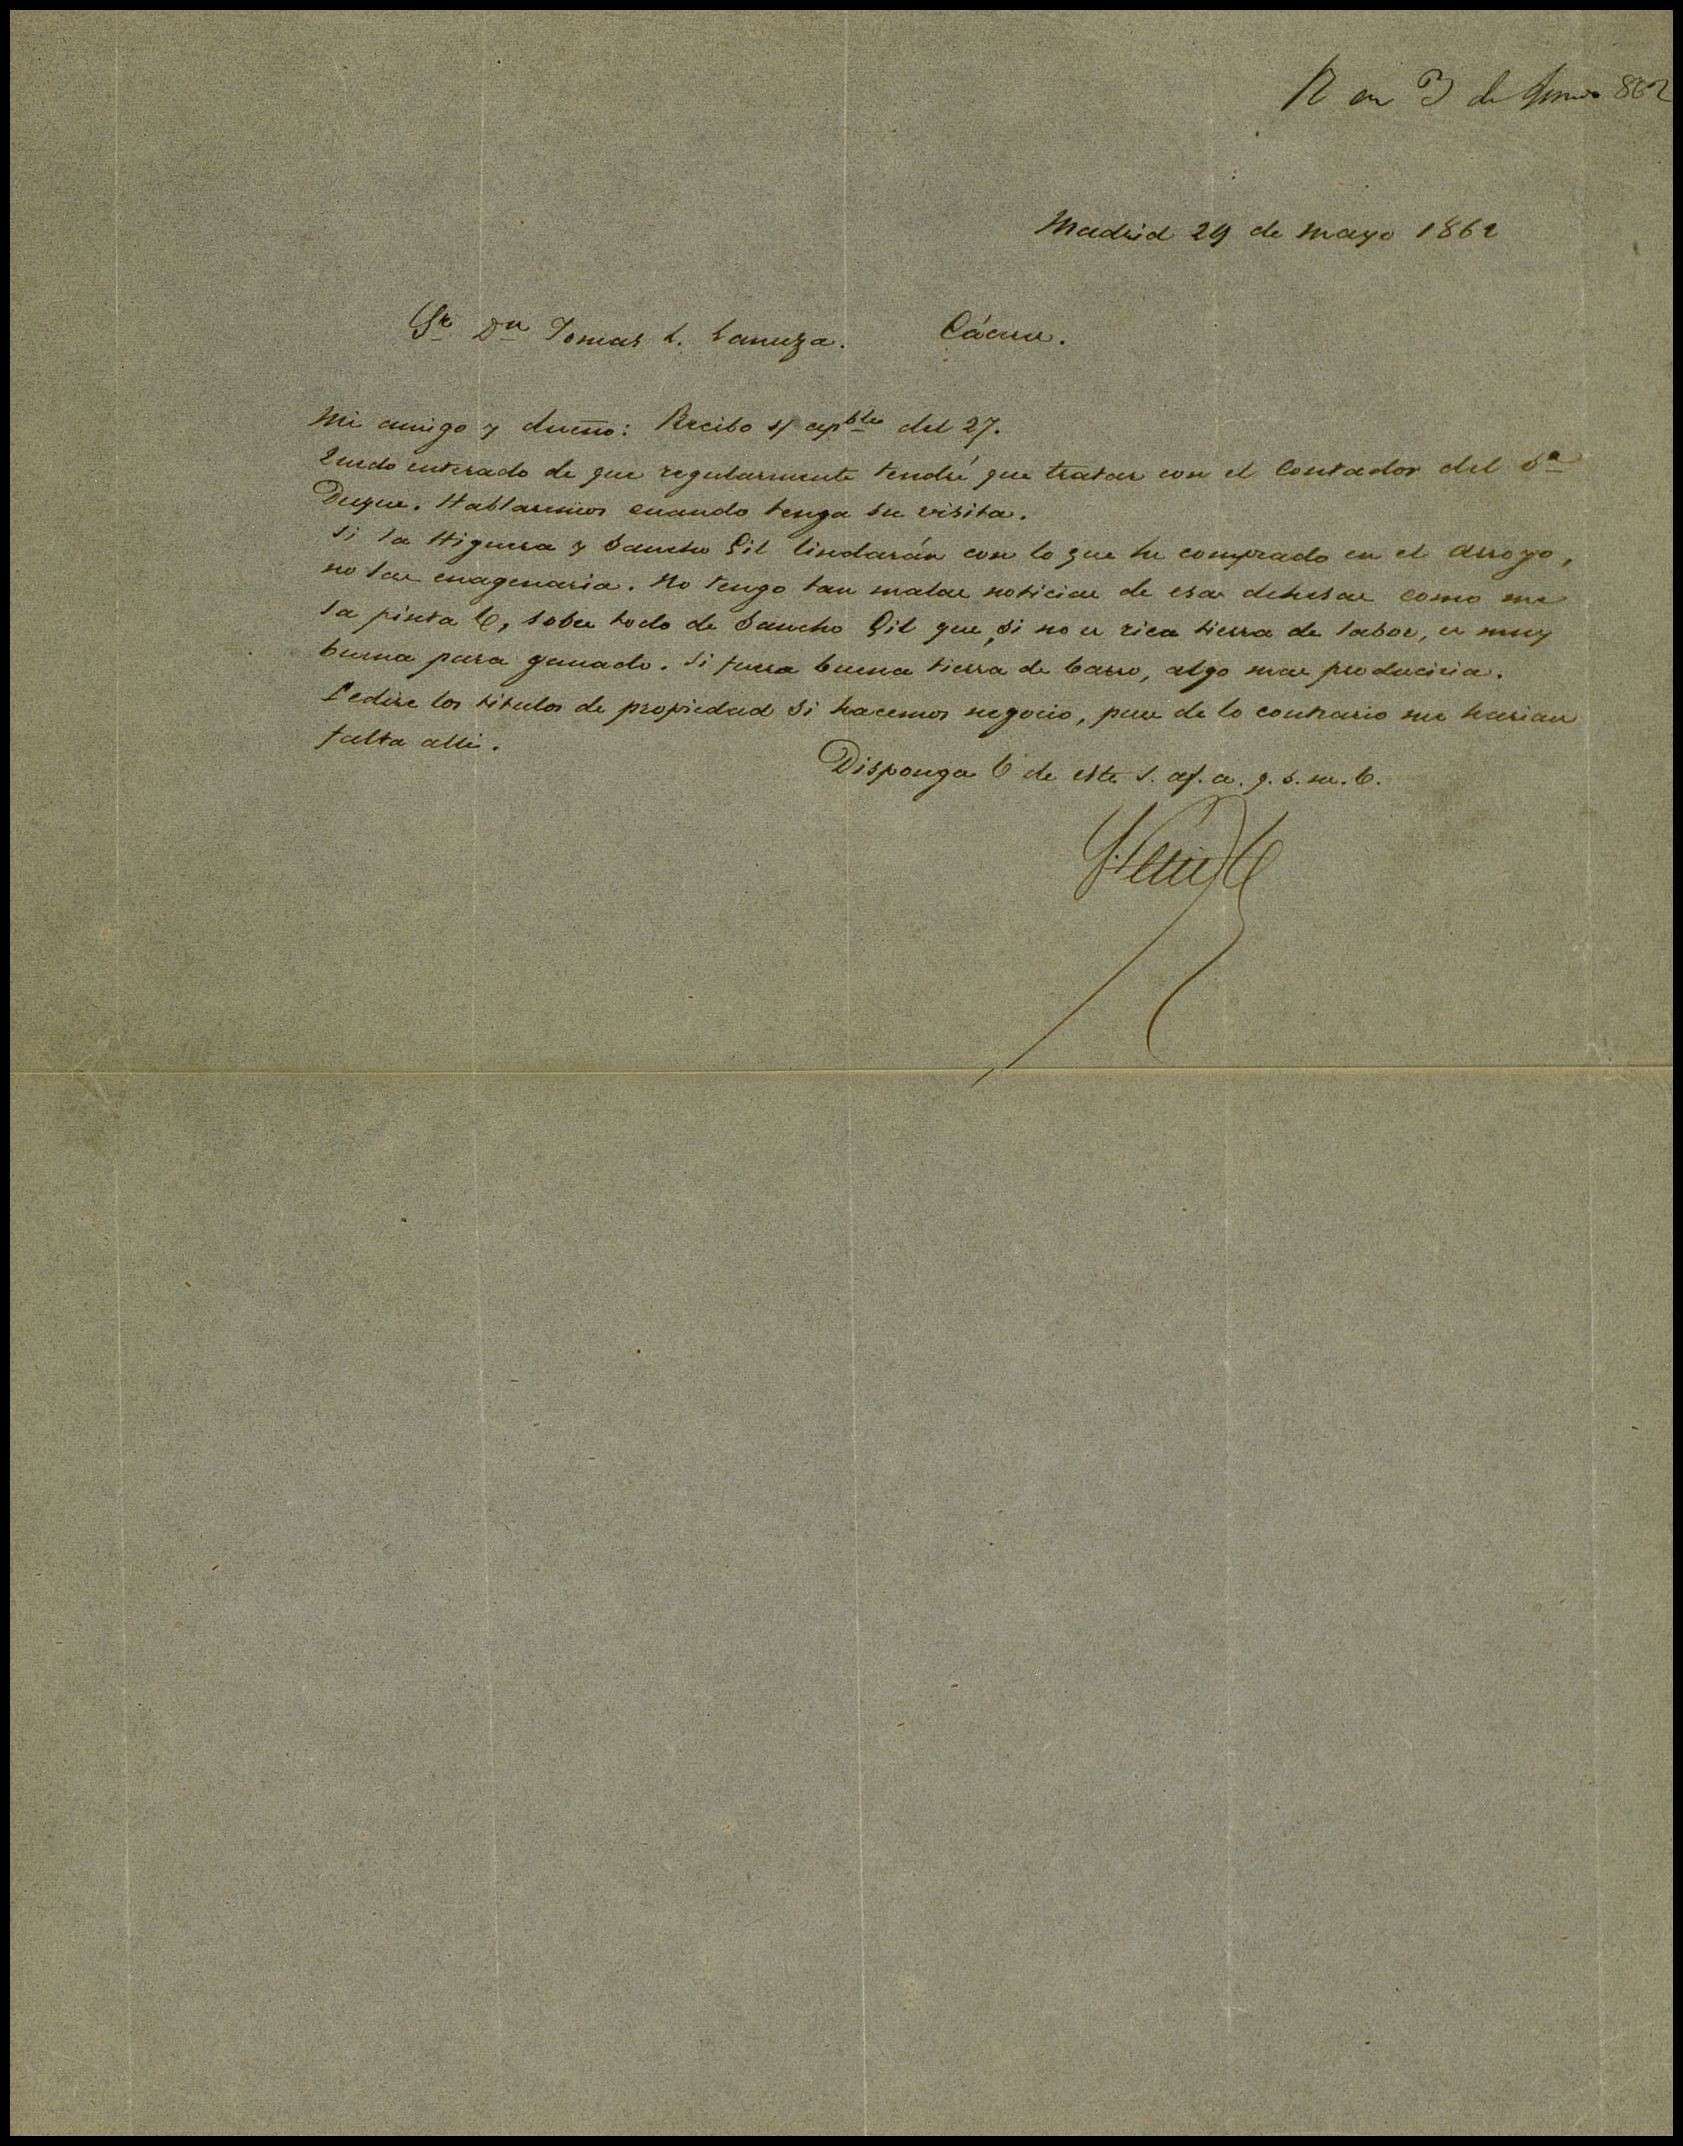 R en 3 de Junio 862
Madrid 29 de Mayo 1862
Sr. Dn Tomas L. Lanuza. Cáceres.
Mi amigo y dueño: Recibo s/ apble del 27.
Quedo enterado de que regularmente tendré que tratar con el Contador del Sr
Duque. Hablaremos cuando tenga su visita.
Si la Higuera y Sancho Gil lindarán con lo que he comprado en el arroyo,
no las enagenaria. No tengo tan malas noticias de esas dehesas como me
la pinta V, sobre todo de Sancho Gil que, si no es rica tierra de labor, es muy
buena para ganado. Si fuera buena tierra de barro, algo mas produciria.
Pedire los titulos de propiedad si hacemos negocio, pues de lo contrario me harian
falta alli.
Disponga V de este s. af. a. q. s. m. b.